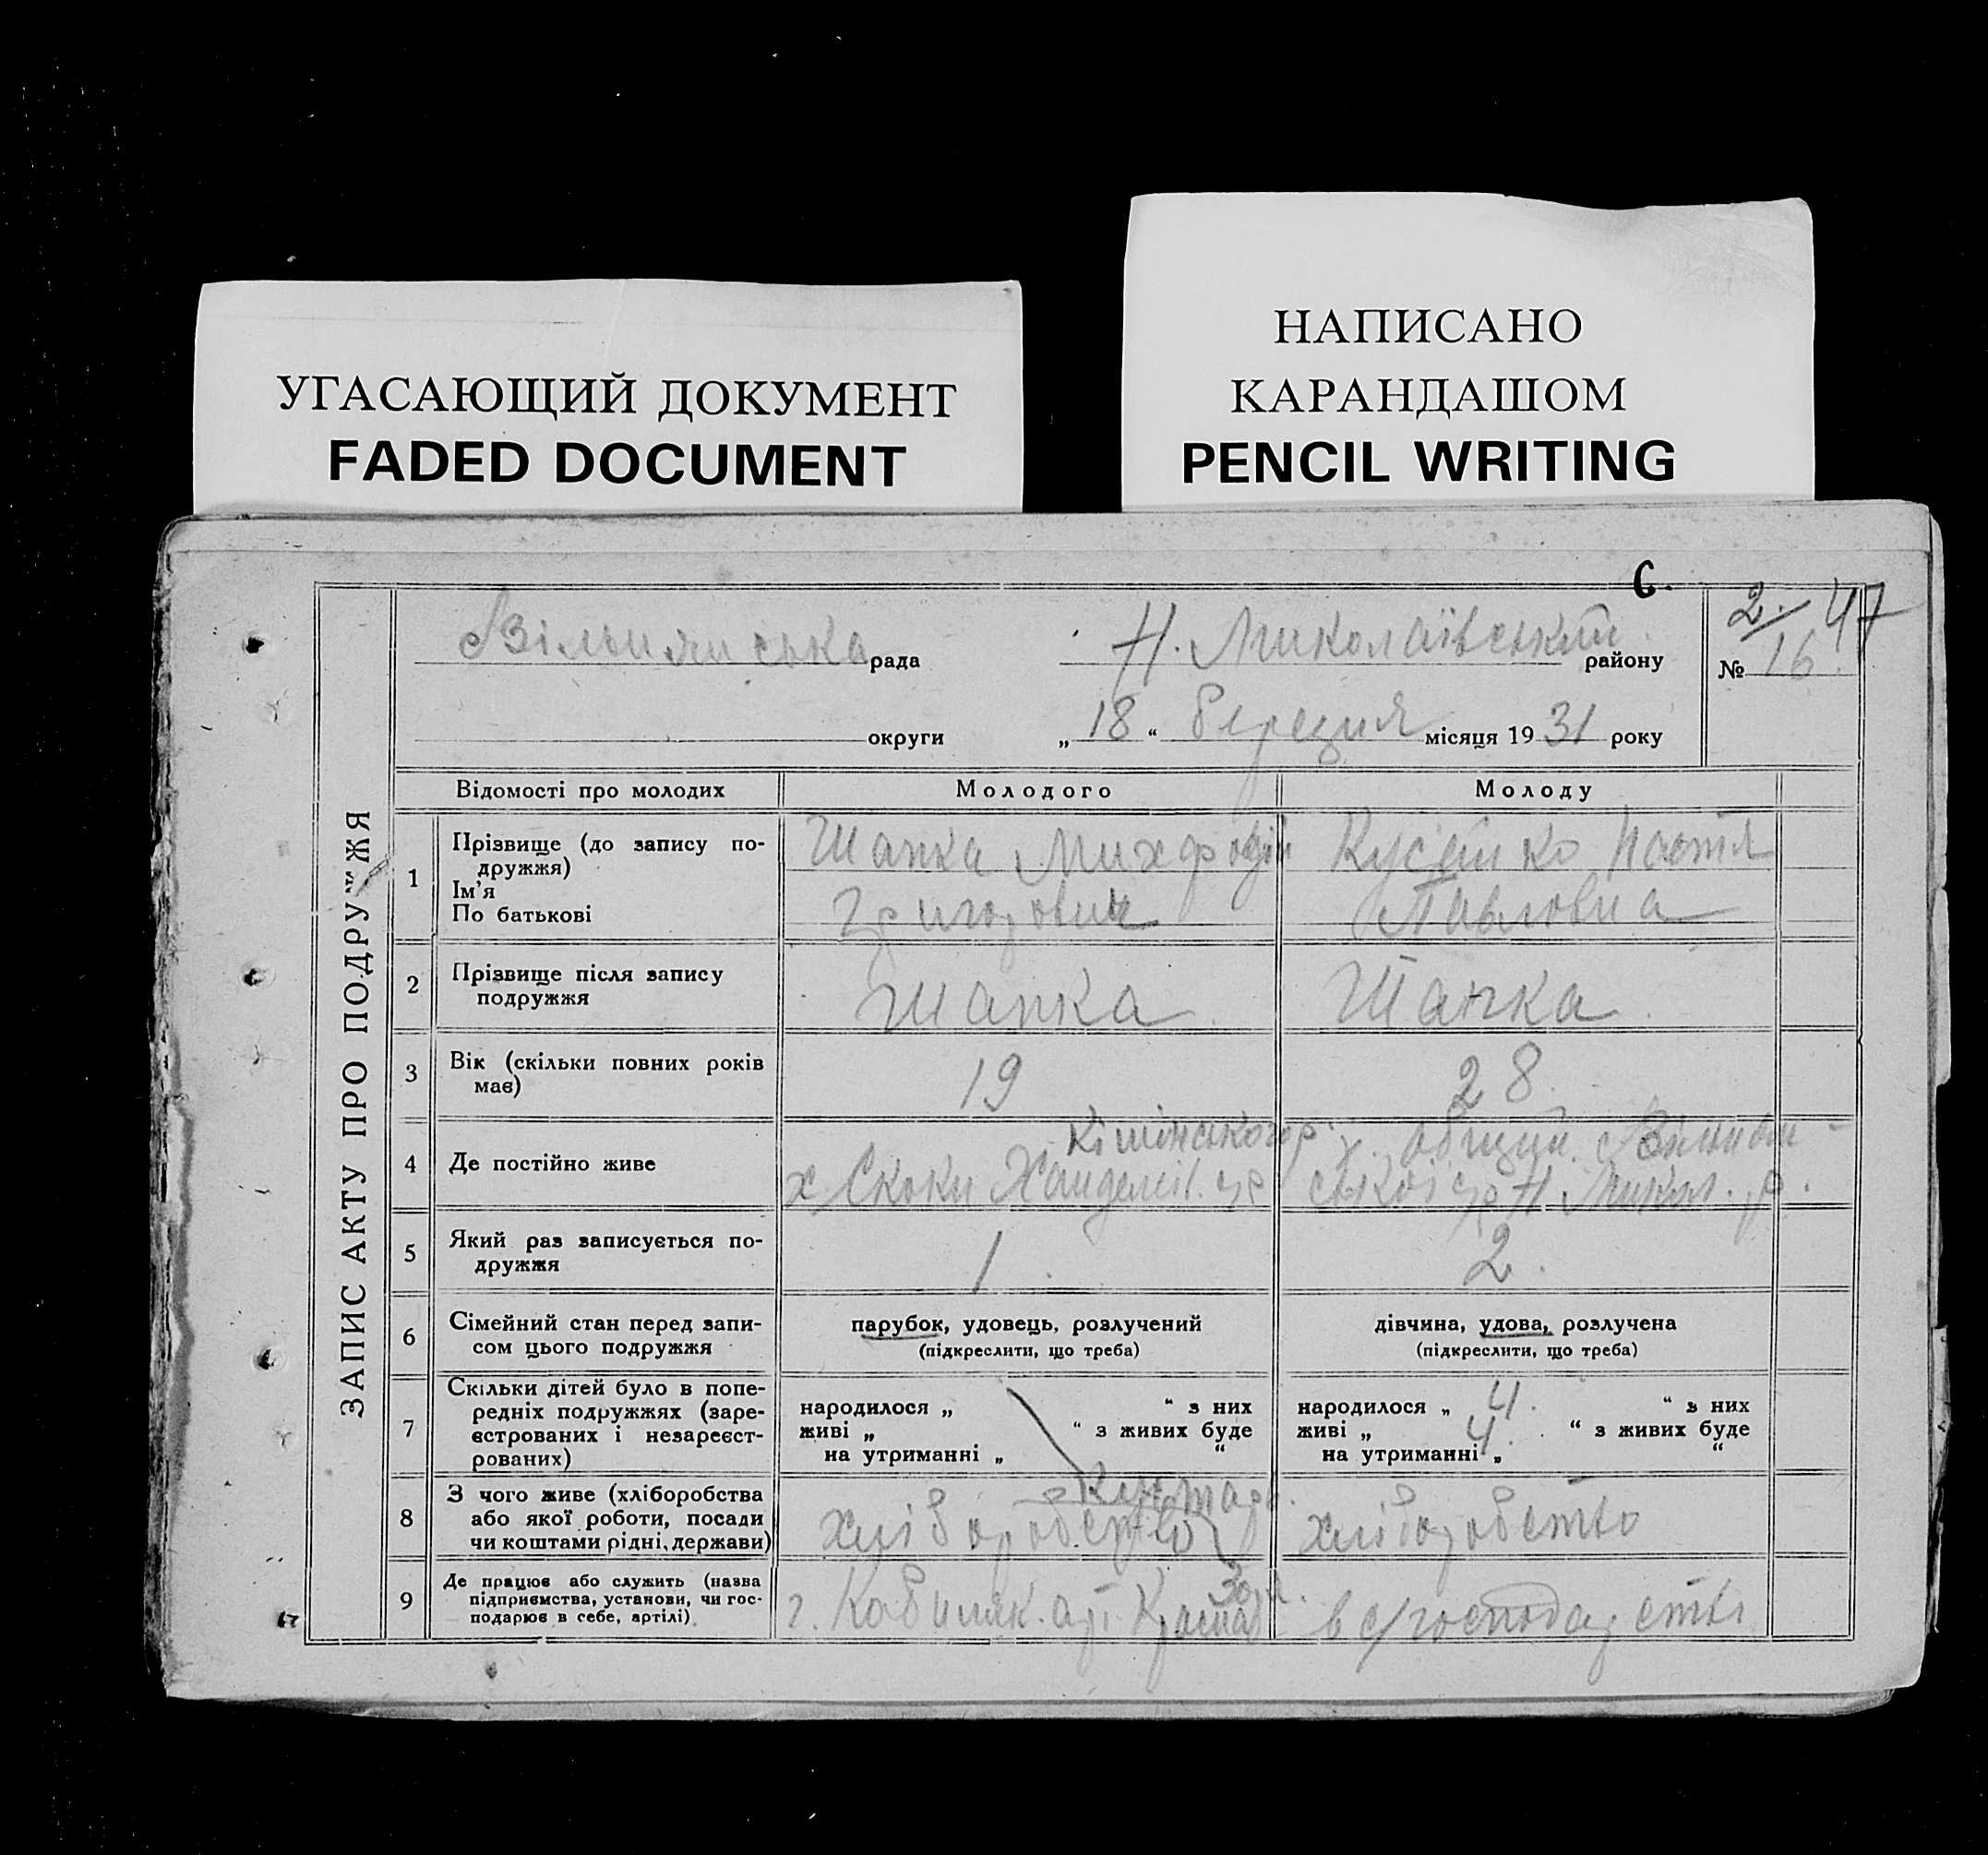 УГАСАЮЩИЙ ДОКУМЕНТ
FADED DOCUMENT
НАПИСАНО
КАРАНДАШОМ
PENCIL WRITING
С.
ЗАПИС АКТУ ПРО ПОДРУЖЖЯ
рада Н. Миколаївський району
2. 47
№ 16
округи „ 18 “ березня місяця 19 31 року
Відомості про молодих Молодого Молоду
1 Прізвище (до запису по-
дружжя)
Ім’я
По батькові
Шапка
Григорович
Настя
Павловна
2 Прізвище після запису
подружжя
Шапка Шапка
3 Вік (скільки повних років
має)
19 28
4 Де постійно живе
х Скоки
с/р Н Микол. р.
5 Який раз записується по-
дружжя
1 2
6 Сімейний стан перед запи-
сом цього подружжя
парубок, удовець, розлучений
(підкреслити, що треба)
дівчина, удова, розлучена
(підкреслити, що треба)
7 Скільки дітей було в попе-
редніх подружжях (заре-
єстрованих і незареєст-
рованих)
народилося „ “ з них
живі „ “ з живих буде
на утриманні „ “
народилося „ 4. “ з них
живі „ 4. “ з живих буде
на утриманні „ “
8 З чого живе (хліборобства
або якої роботи, посади
чи коштами рідні, держави)
хліборобство хліборобство
9 Де працює або служить (назва
підприємства, установи, чи гос-
подарює в себе, артілі)
в с/господарстві